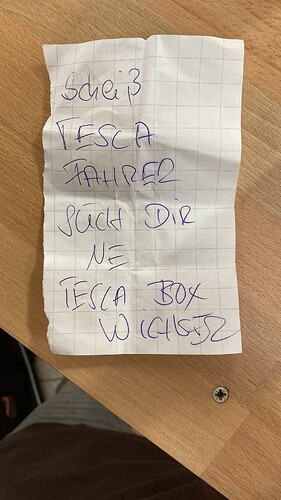 Scheiß
TESLA
FAHRER
SUCH DIR
NE
TESLA BOX
WICHSER